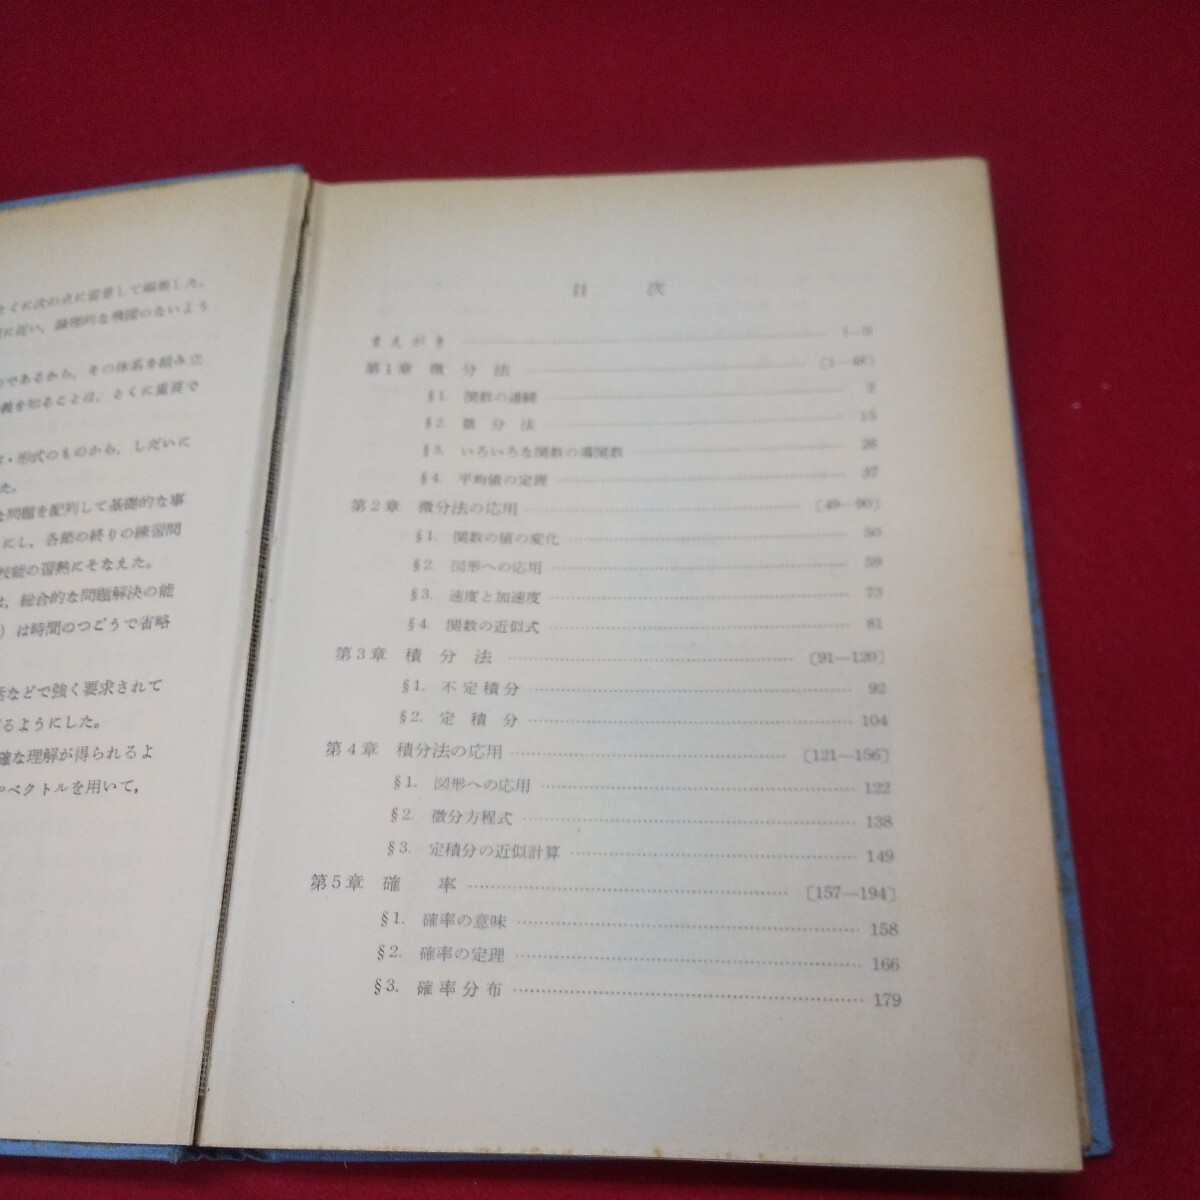 とくに次の点に留意して編集した。
に従い、論理的な飛躍のないよう
のであるから、その体系を組み立
義を知ることは、とくに重要で
・形式のものから、しだいに
た。
な問題を配列して基礎的な事
にし、各節の終りの練習問
技能の習熟にそなえた。
は、総合的な問題解決の能
）は時間のつごうで省略
活などで強く要求されて
るようにした。
確な理解が得られるよ
やベクトルを用いて，
目 次
まえがき
第1章 微分法 〔1—48〕
§1. 関数の連続 2
§2. 微分法 15
§3. いろいろな関数の導関数 26
§4. 平均値の定理 37
第2章 微分法の応用 〔49—90〕
§1. 関数の値の変化 50
§2. 図形への応用 59
§3. 速度と加速度 73
§4. 関数の近似式 81
第3章 積分法 〔91—120〕
§1. 不定積分 92
§2. 定積分 104
第4章 積分法の応用 〔121—156〕
§1. 図形への応用 122
§2. 微分方程式 138
§3. 定積分の近似計算 149
第5章 確率 〔157—194〕
§1. 確率の意味 158
§2. 確率の定理 166
§3. 確率分布 179